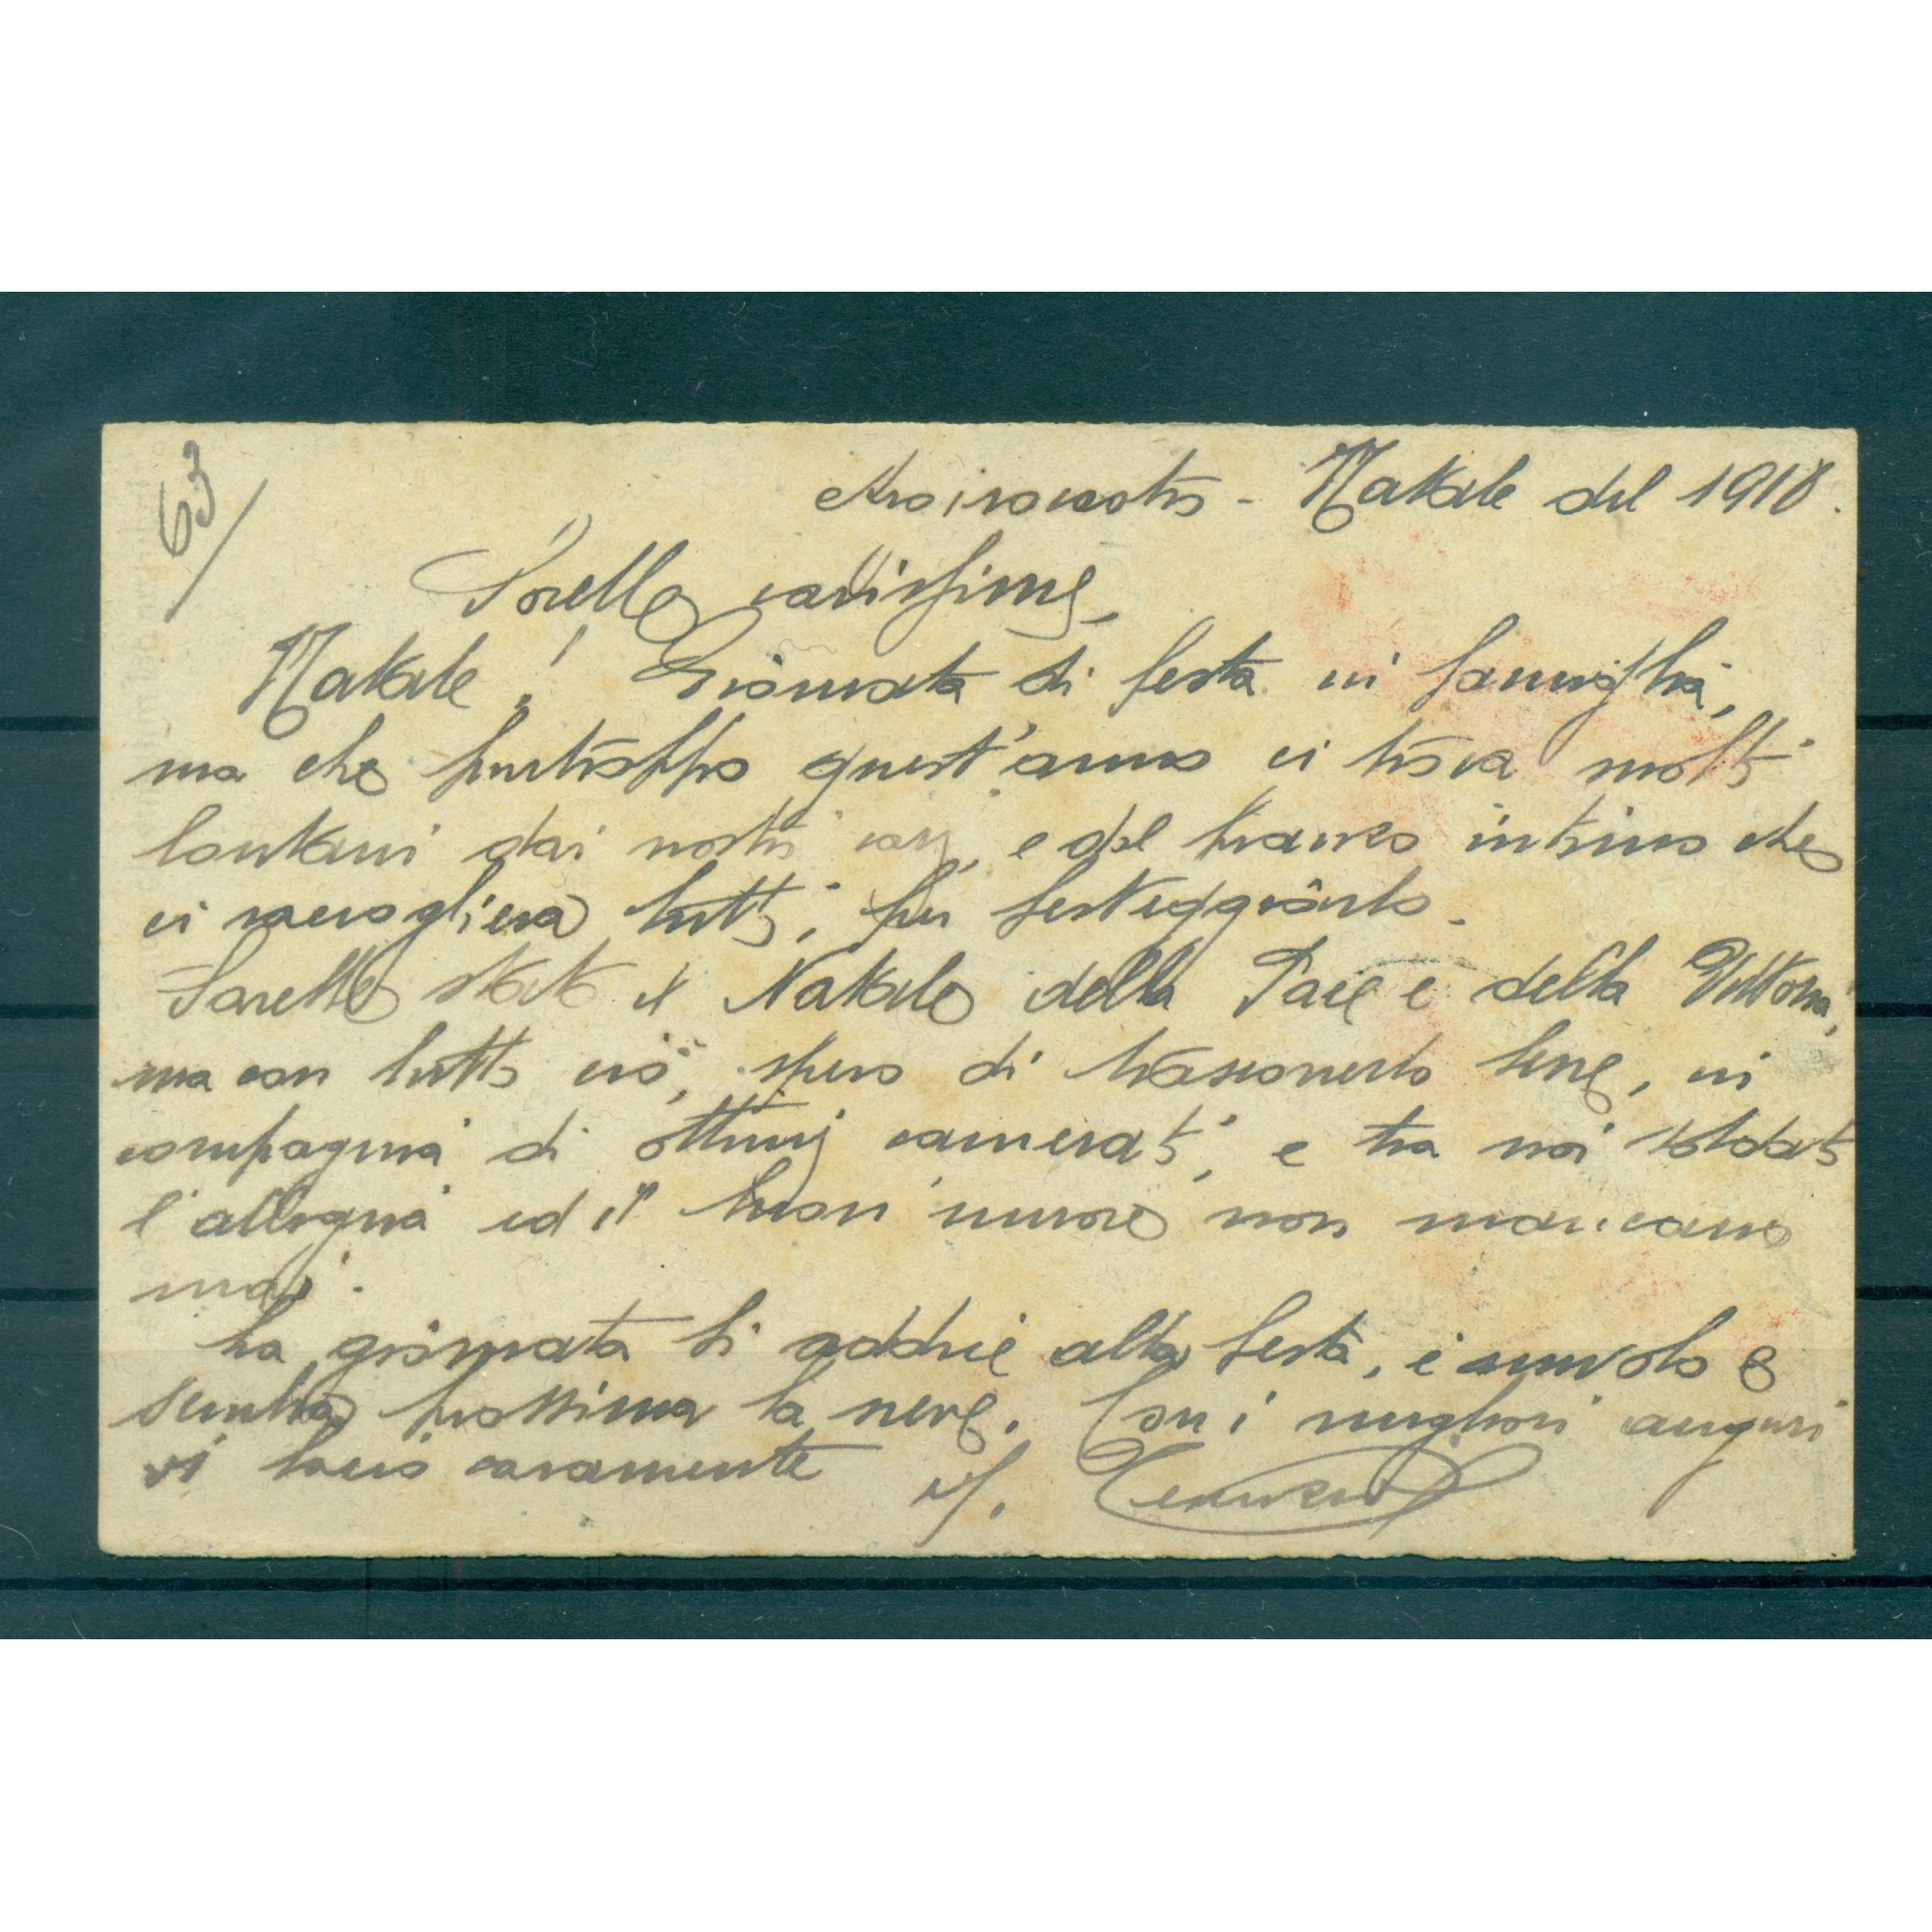 63/
Natale del 1918.
Sorelle carissime,
Natale! Giornata di festa in famiglia,
ma che purtroppo quest'anno ci trova molti
lontani dai nostri cari, e dal pranzo intimo che
ci raccoglieva tutti, per festeggiarlo.
Sarebbe stato il Natale della Pace e della Vittoria,
ma con tutto ciò, spero di trascorrerlo bene, in
compagnia di ottimi camerati, e tra noi soldati
l'allegria ed il buon'umore non mancano
mai.
La giornata si addice alla festa, è nuvolo e
sembra prossima la neve. Con i migliori auguri
vi bacio caramente